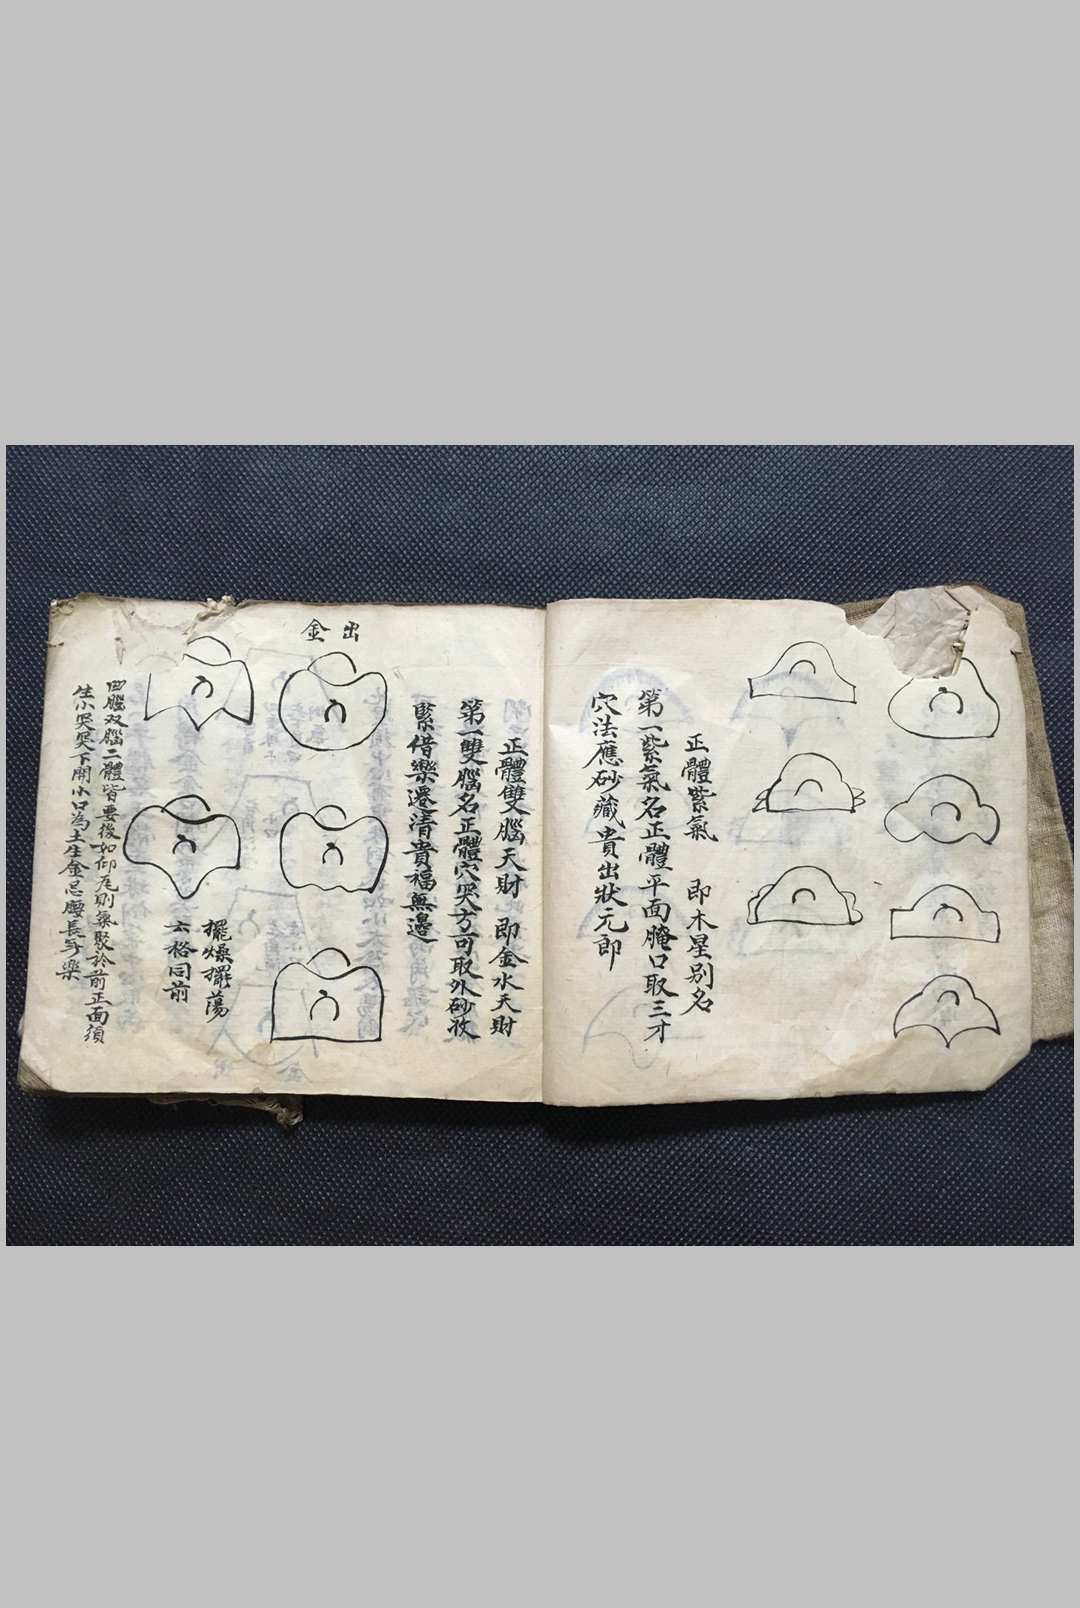 正體紫氣　即木星別名
第一紫氣名正體平面腌口取三才
穴法應砂藏貴出狀元郎
正體雙腦天財　即金水天財
第一雙腦名正體穴突方可取外砂妝
緊借樂還清貴福無邊
出金
擺燥擺蕩
六格同前
凹腦双腦二體皆要後如仰瓦則氣聚於前正面須
生小突突下開小口為土生金忌腰長等樂